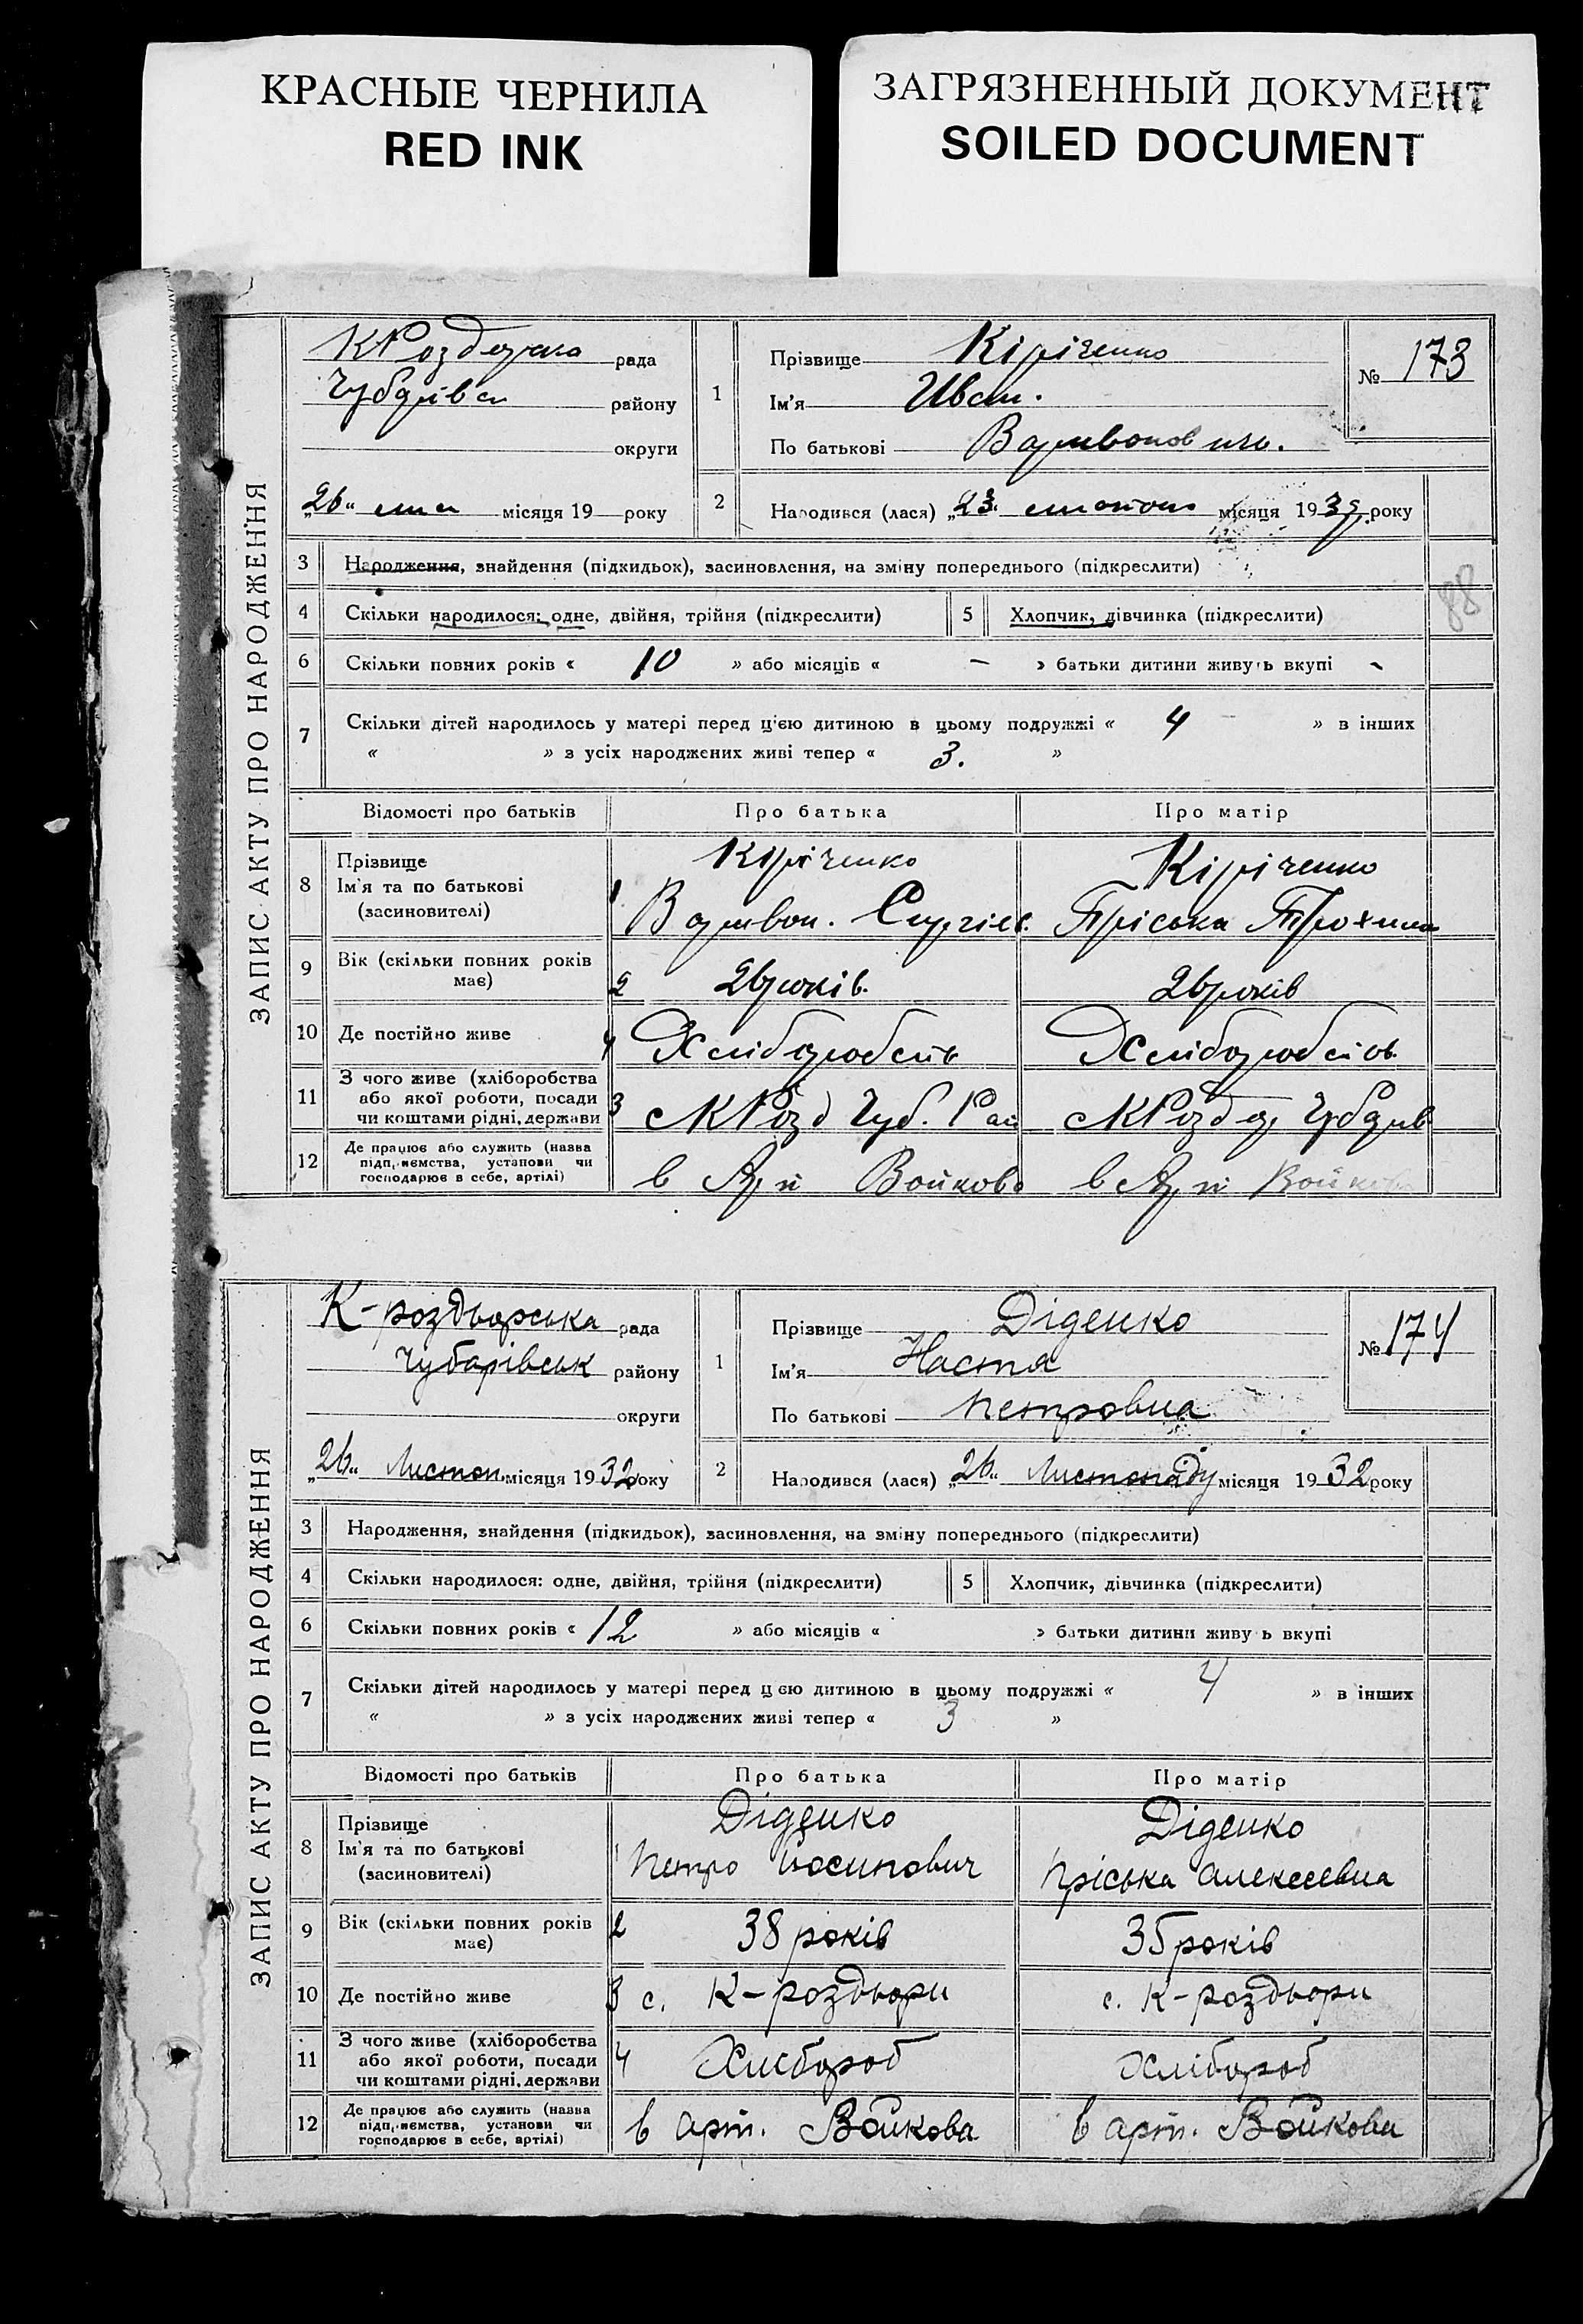 КРАСНЫЕ ЧЕРНИЛА
RED INK
ЗАГРЯЗНЕННЫЙ ДОКУМЕНТ
SOILED DOCUMENT
ЗАПИС АКТУ ПРО НАРОДЖЕННЯ
рада
району
округи
„26“ місяця 19 року
1
Прізвище Кіріченко
Ім'я Иван.
По батькові
№ 173
2
Народився (лася) „23“ місяця 1932 року
3 Народження, знайдення (підкидьок), засиновлення, на зміну попереднього (підкреслити)
88
4 Скільки народилося: одне, двійня, трійня (підкреслити) 5 Хлопчик, дівчинка (підкреслити)
6 Скільки повних років « 10 » або місяців « — » батьки дитини живуть вкупі
7 Скільки дітей народилось у матері перед цією дитиною в цьому подружжі « 4 » в інших
« » з усіх народжених живі тепер « 3. »
Відомості про батьків Про батька Про матір
8 Прізвище
Ім'я та по батькові
(засиновителі)
1 Кіріченко
Кіріченко
Пріська
9 Вік (скільки повних років
має)
2 26 років. 26 років
10 Де постійно живе 4
11 З чого живе (хліборобства
або якої роботи, посади
чи коштами рідні, держави
3 с К Розд Чуб. Рай
12 Де працює або служить (назва
підприємства, установи чи
господарює в себе, артілі)
в Войкова в Войкова
ЗАПИС АКТУ ПРО НАРОДЖЕННЯ
К-роздорська рада
Чубарівськ району
округи
„26“ Листоп. місяця 1932 року
1
Прізвище Діденко
Ім'я Настя
По батькові Петровна
№ 174
2
Народився (лася) „26“ Листопаду місяця 1932 року
3 Народження, знайдення (підкидьок), засиновлення, на зміну попереднього (підкреслити)
4 Скільки народилося: одне, двійня, трійня (підкреслити) 5 Хлопчик, дівчинка (підкреслити)
6 Скільки повних років « 12 » або місяців « » батьки дитини живуть вкупі
7 Скільки дітей народилось у матері перед цією дитиною в цьому подружжі « 4 » в інших
« » з усіх народжених живі тепер « 3 »
Відомості про батьків Про батька Про матір
8 Прізвище
Ім'я та по батькові
(засиновителі)
Діденко
1 Петро Йосипович
Діденко
Пріська Алексеевна
9 Вік (скільки повних років
має)
2 38 років 35 років
10 Де постійно живе 3 с. К-роздори с. К-роздори
11 З чого живе (хліборобства
або якої роботи, посади
чи коштами рідні, держави
4 Хлібороб Хлібороб
12 Де працює або служить (назва
підприємства, установи чи
господарює в себе, артілі)
в арт. Войкова в арт. Войкова